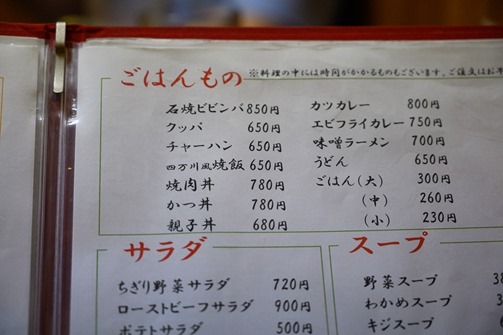 ごはんもの
※料理の中には時間がかかるものもございます。ご注文はお
石焼ビビンバ 850円
クッパ 650円
チャーハン 650円
四万川風焼飯 650円
焼肉丼 780円
かつ丼 780円
親子丼 680円
カツカレー 800円
エビフライカレー 750円
味噌ラーメン 700円
うどん 650円
ごはん(大) 300円
(中) 260円
(小) 230円
サラダ
ちぎり野菜サラダ 720円
ローストビーフサラダ 900円
ポテトサラダ 500円
スープ
野菜スープ
わかめスープ
キジスープ